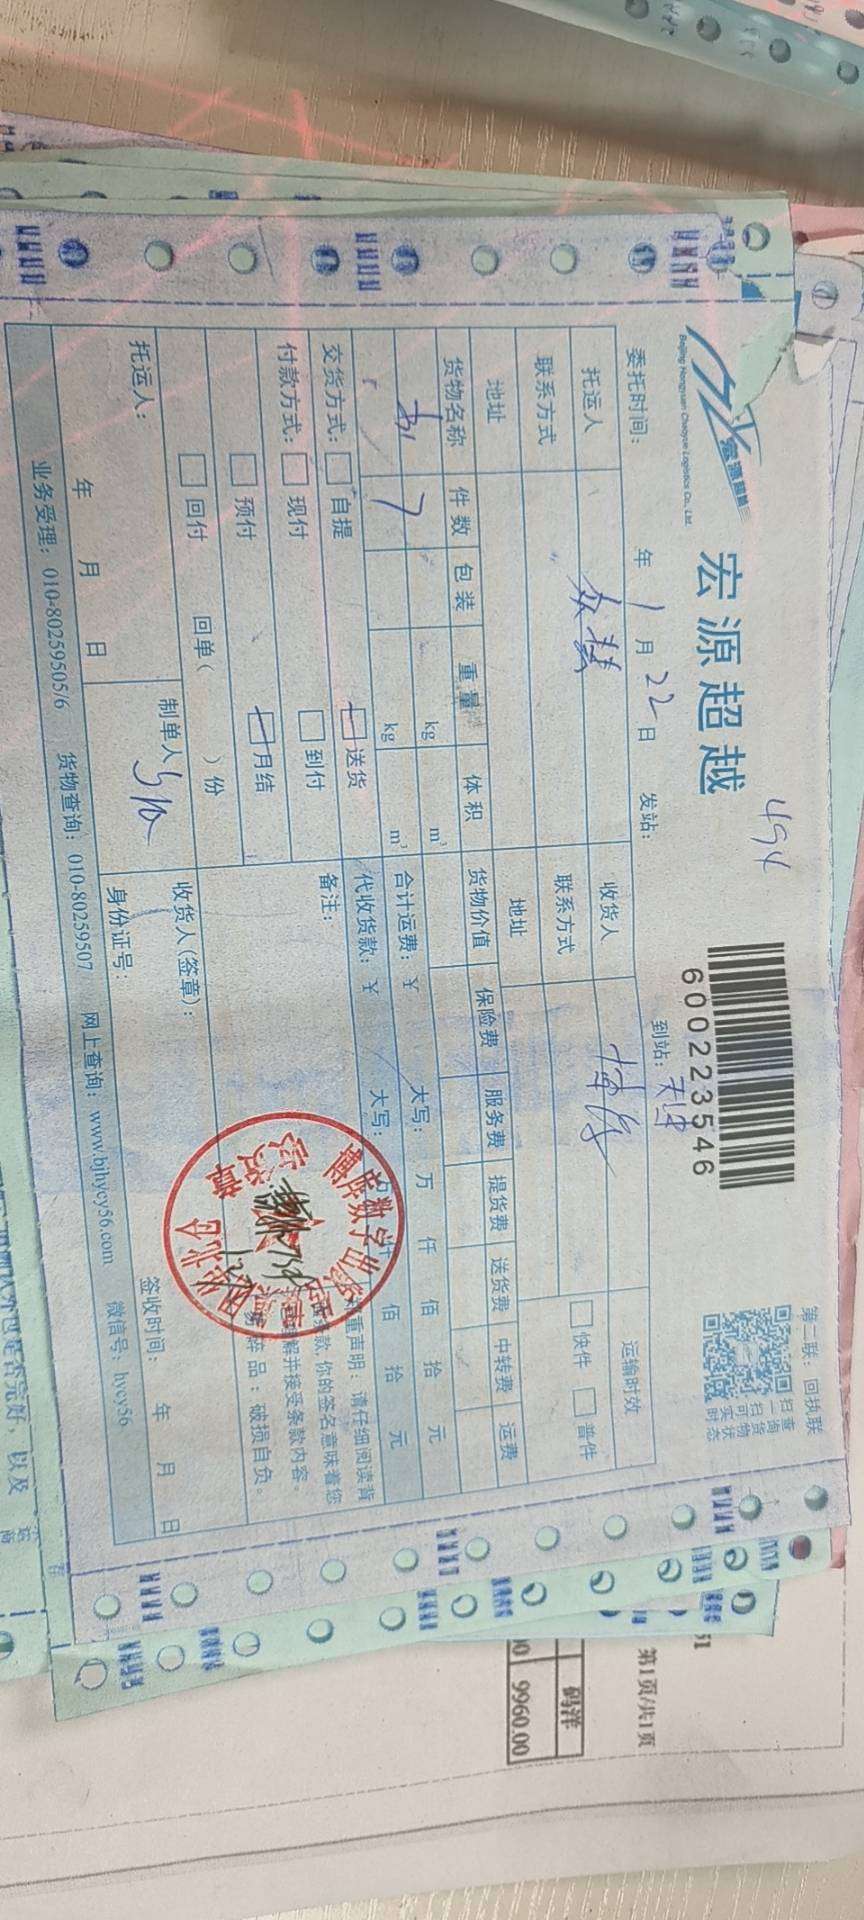 宏源超越
Beijing Hongyuan Chaoyue Logistics Co., Ltd.
宏源超越
494
6002223546
第二联：回执联
扫一扫
查询货物
可实时状态
委托时间： 年 1 月 22 日 发站： 到站：天津
托运人 众慧 收货人 博海 运输时效
联系方式 联系方式 快件 普件
地址 地址
货物名称 件数 包装 重量 体积 货物价值 保险费 服务费 提货费 送货费 中转费 运费
书 7 kg m³ 合计运费：¥ 大写： 万 仟 佰 拾 元
kg m³ 代收货款：¥ 大写： 佰 拾 元
交货方式： 自提 送货 备注：
付款方式： 现付 到付
预付 月结
回付 回单（ ）份
郑重声明：请仔细阅读背
条款，你的签名意味着您
解并接受条款内容。
易碎品：破损自负。
托运人： 制单人 收货人（签章）：
年 月 日 身份证号： 签收时间： 年 月 日
业务受理：010-80259505/6 货物查询：010-80259507 网上查询：www.bjhycy56.com 微信号：hycy56
收货章
51
第1页/共1页
码洋
00 9960.00